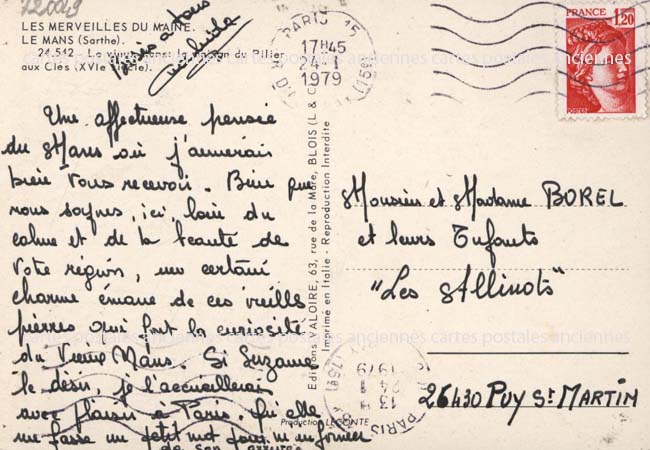 720049
LES MERVEILLES DU MAINE.
LE MANS (Sarthe).
24.542 - Le vieux Mans: la maison du Pilier
aux Clés (XVIe siècle).
Baisers à tous
Une affectueuse pensée
du Mans où j'aimerais
bien vous recevoir. Bien que
nous soyons, ici, loin du
calme et de la beauté de
votre région, un certain
charme émane de ces vieilles
pierres qui font la curiosité
du Vieux Mans. Si Suzanne
le désir, je l'accueillerais
avec plaisir à Paris. Qu'elle
me fasse un petit mot pour m'informer
de son arrivée
Editions VALOIRE, 63, rue de la Mare, BLOIS (L & C)
Imprimé en Italie - Reproduction Interdite
Production LECONTE
PARIS 15
17H45
1979
(15e)
FRANCE
1,20
Monsieur et Madame BOREL
et leurs Enfants
"Les Allinots"
26430 PUY ST MARTIN
13 H
24-1
1979
PARIS
cartes postales anciennes cartes postales anciennes
cartes postales anciennes cartes postales anciennes